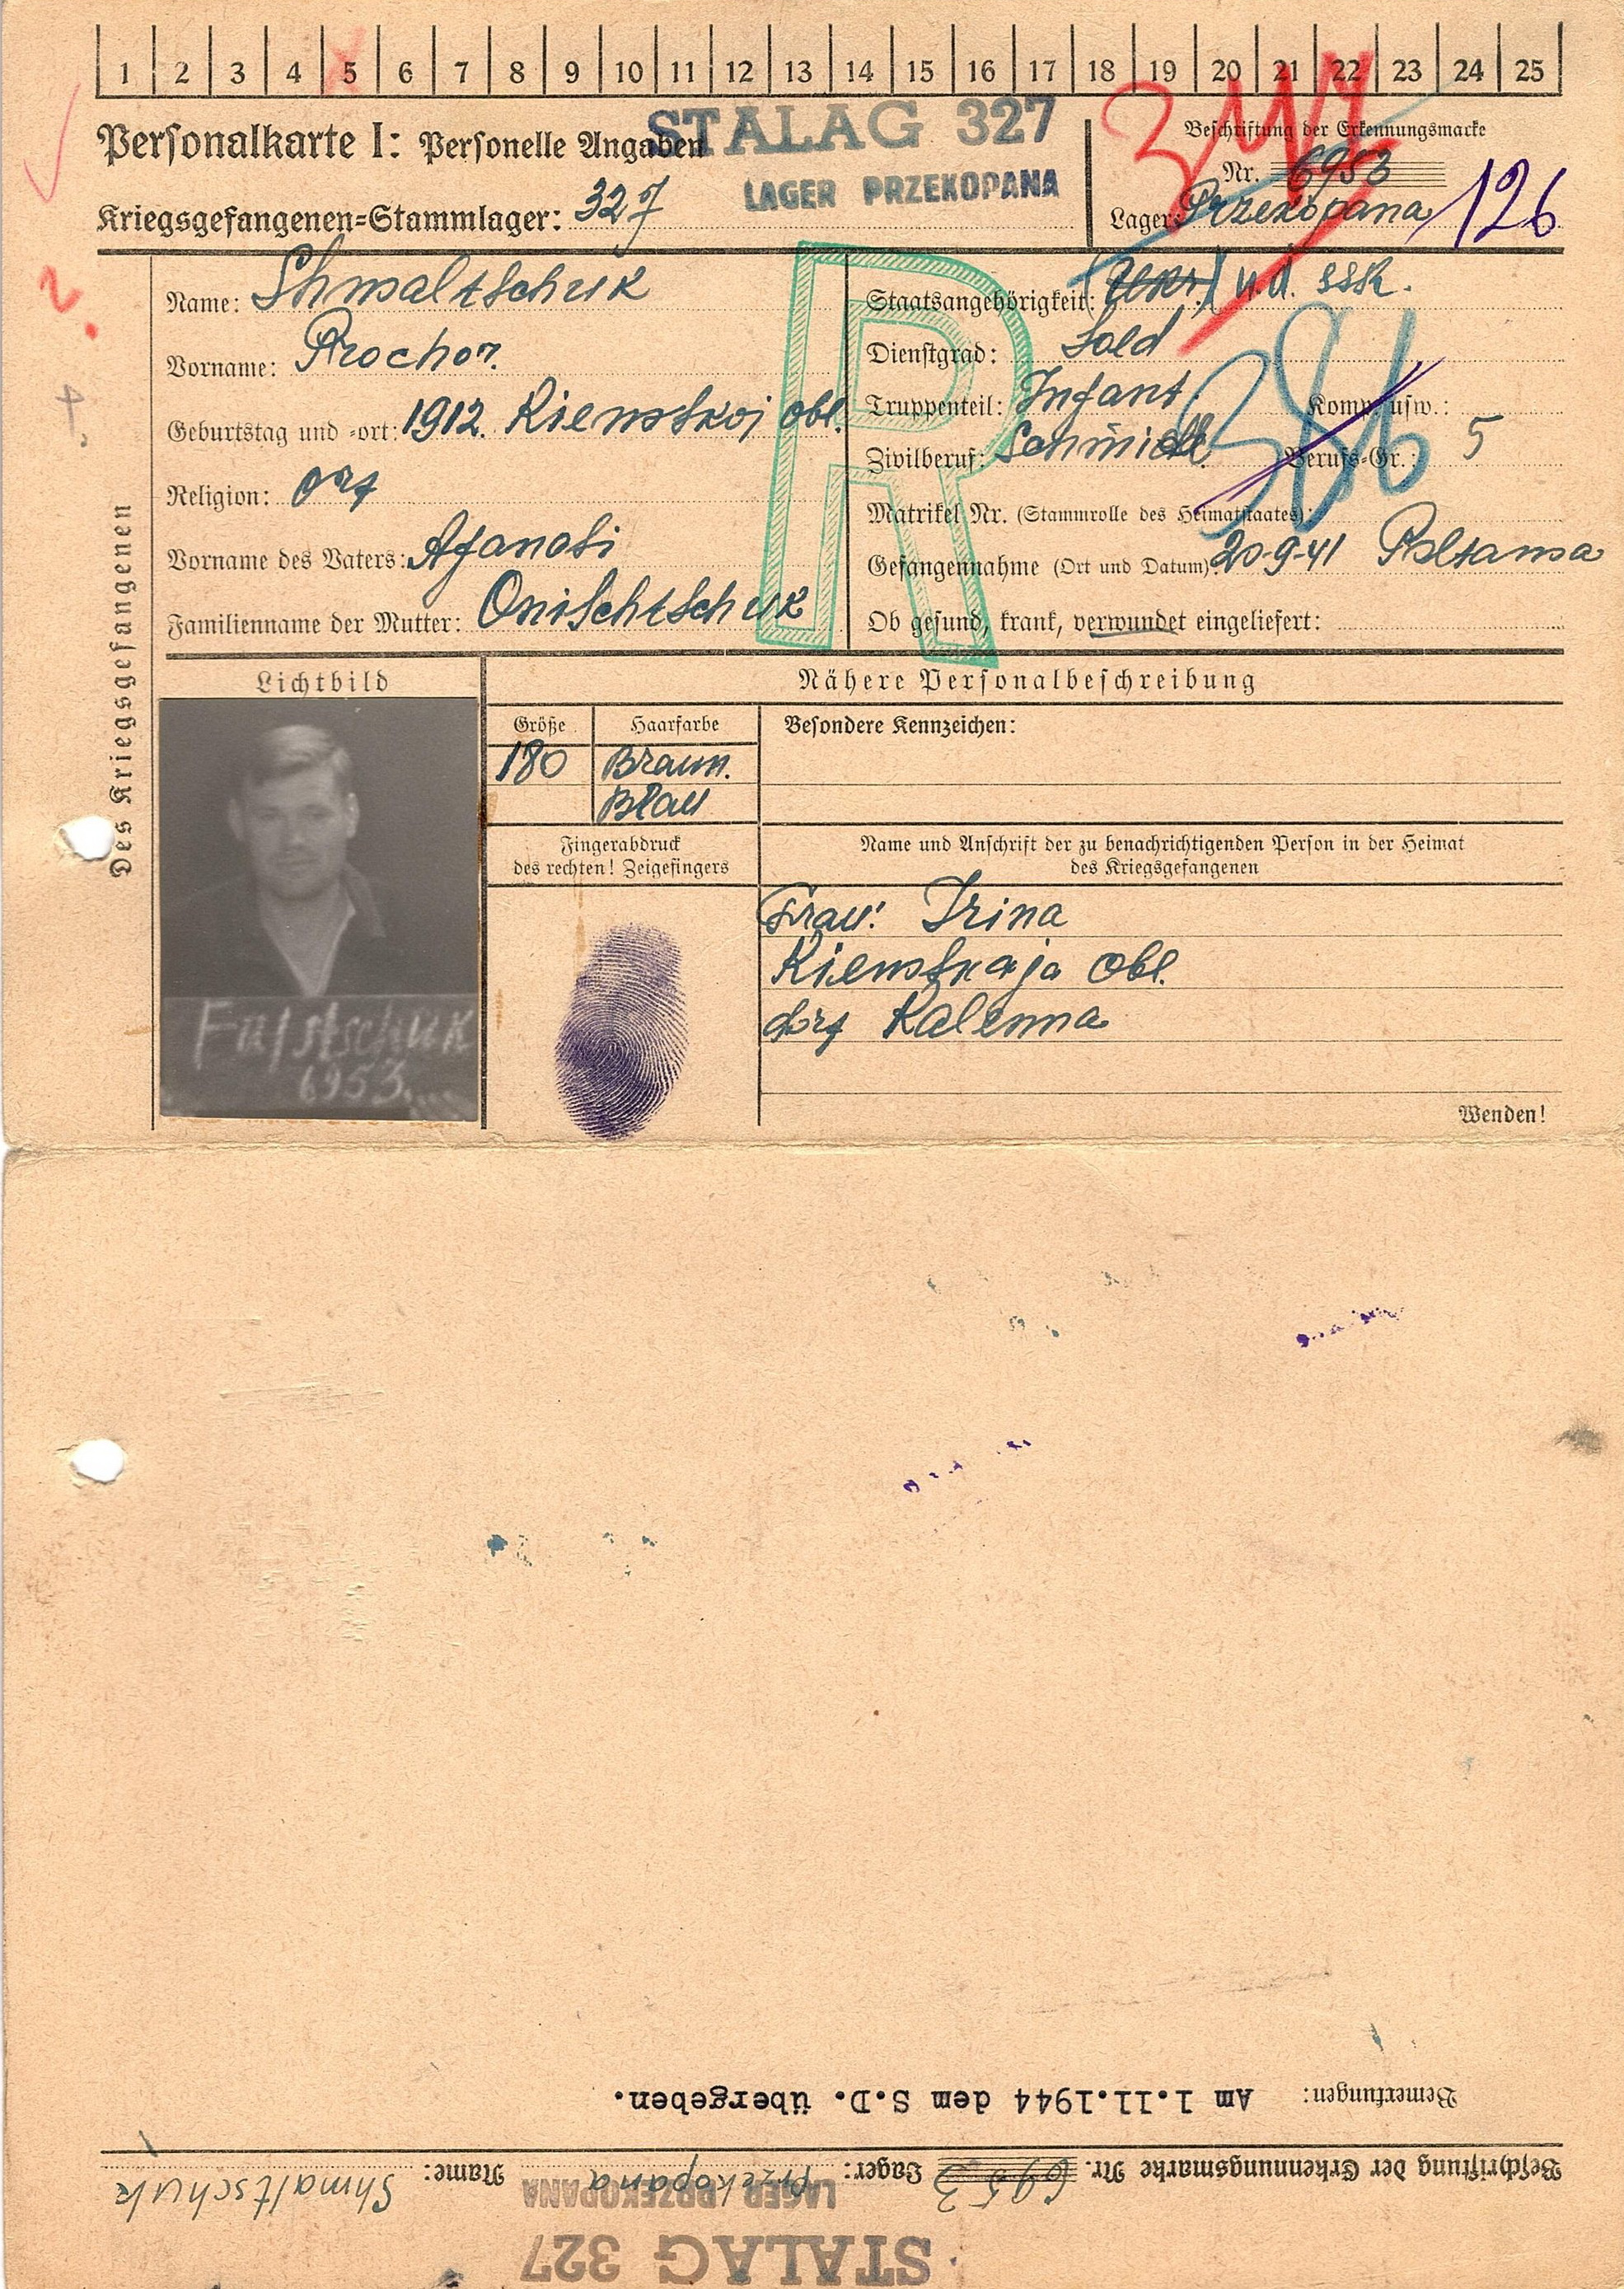 1 2 3 4 5 6 7 8 9 10 11 12 13 14 15 16 17 18 19 20 21 22 23 24 25
Personalkarte I: Personelle Angaben
STALAG 327
LAGER PRZEKOPANA
Kriegsgefangenen-Stammlager: 327
Beschriftung der Erkennungsmarke
Nr. 6953
Lager: Przekopana 126
Des Kriegsgefangenen
Name: Shmaltschuk
Vorname: Prochor.
Geburtstag und -ort: 1912. Kiewskoj obl.
Religion: ort
Vorname des Vaters: Afanasi
Familienname der Mutter: Onischtschuk
R
Staatsangehörigkeit: (Ukr.) U.d.SSR.
Dienstgrad: Sold
Truppenteil: Infant. Komp. usw.:
Zivilberuf: Schmidt. Berufs-Gr.: 5
386
Matrikel Nr. (Stammrolle des Heimatstaates):
Gefangennahme (Ort und Datum): 20-9-41 Poltawa
Ob gesund, krank, verwundet eingeliefert:
Lichtbild
6953
Nähere Personalbeschreibung
Größe
180
Haarfarbe
Braun.
Blau
Besondere Kennzeichen:
Fingerabdruck
des rechten! Zeigefingers
Name und Anschrift der zu benachrichtigenden Person in der Heimat
des Kriegsgefangenen
Frau: Irina
Kiewskaja obl.
dorf Kalenna
Wenden!
STALAG 327
LAGER PRZEKOPANA
Beschriftung der Erkennungsmarke Nr. 6953 Lager: Przekopana Name: Shmaltschuk
Bemerkungen: Am 1.11.1944 dem S.D. übergeben.